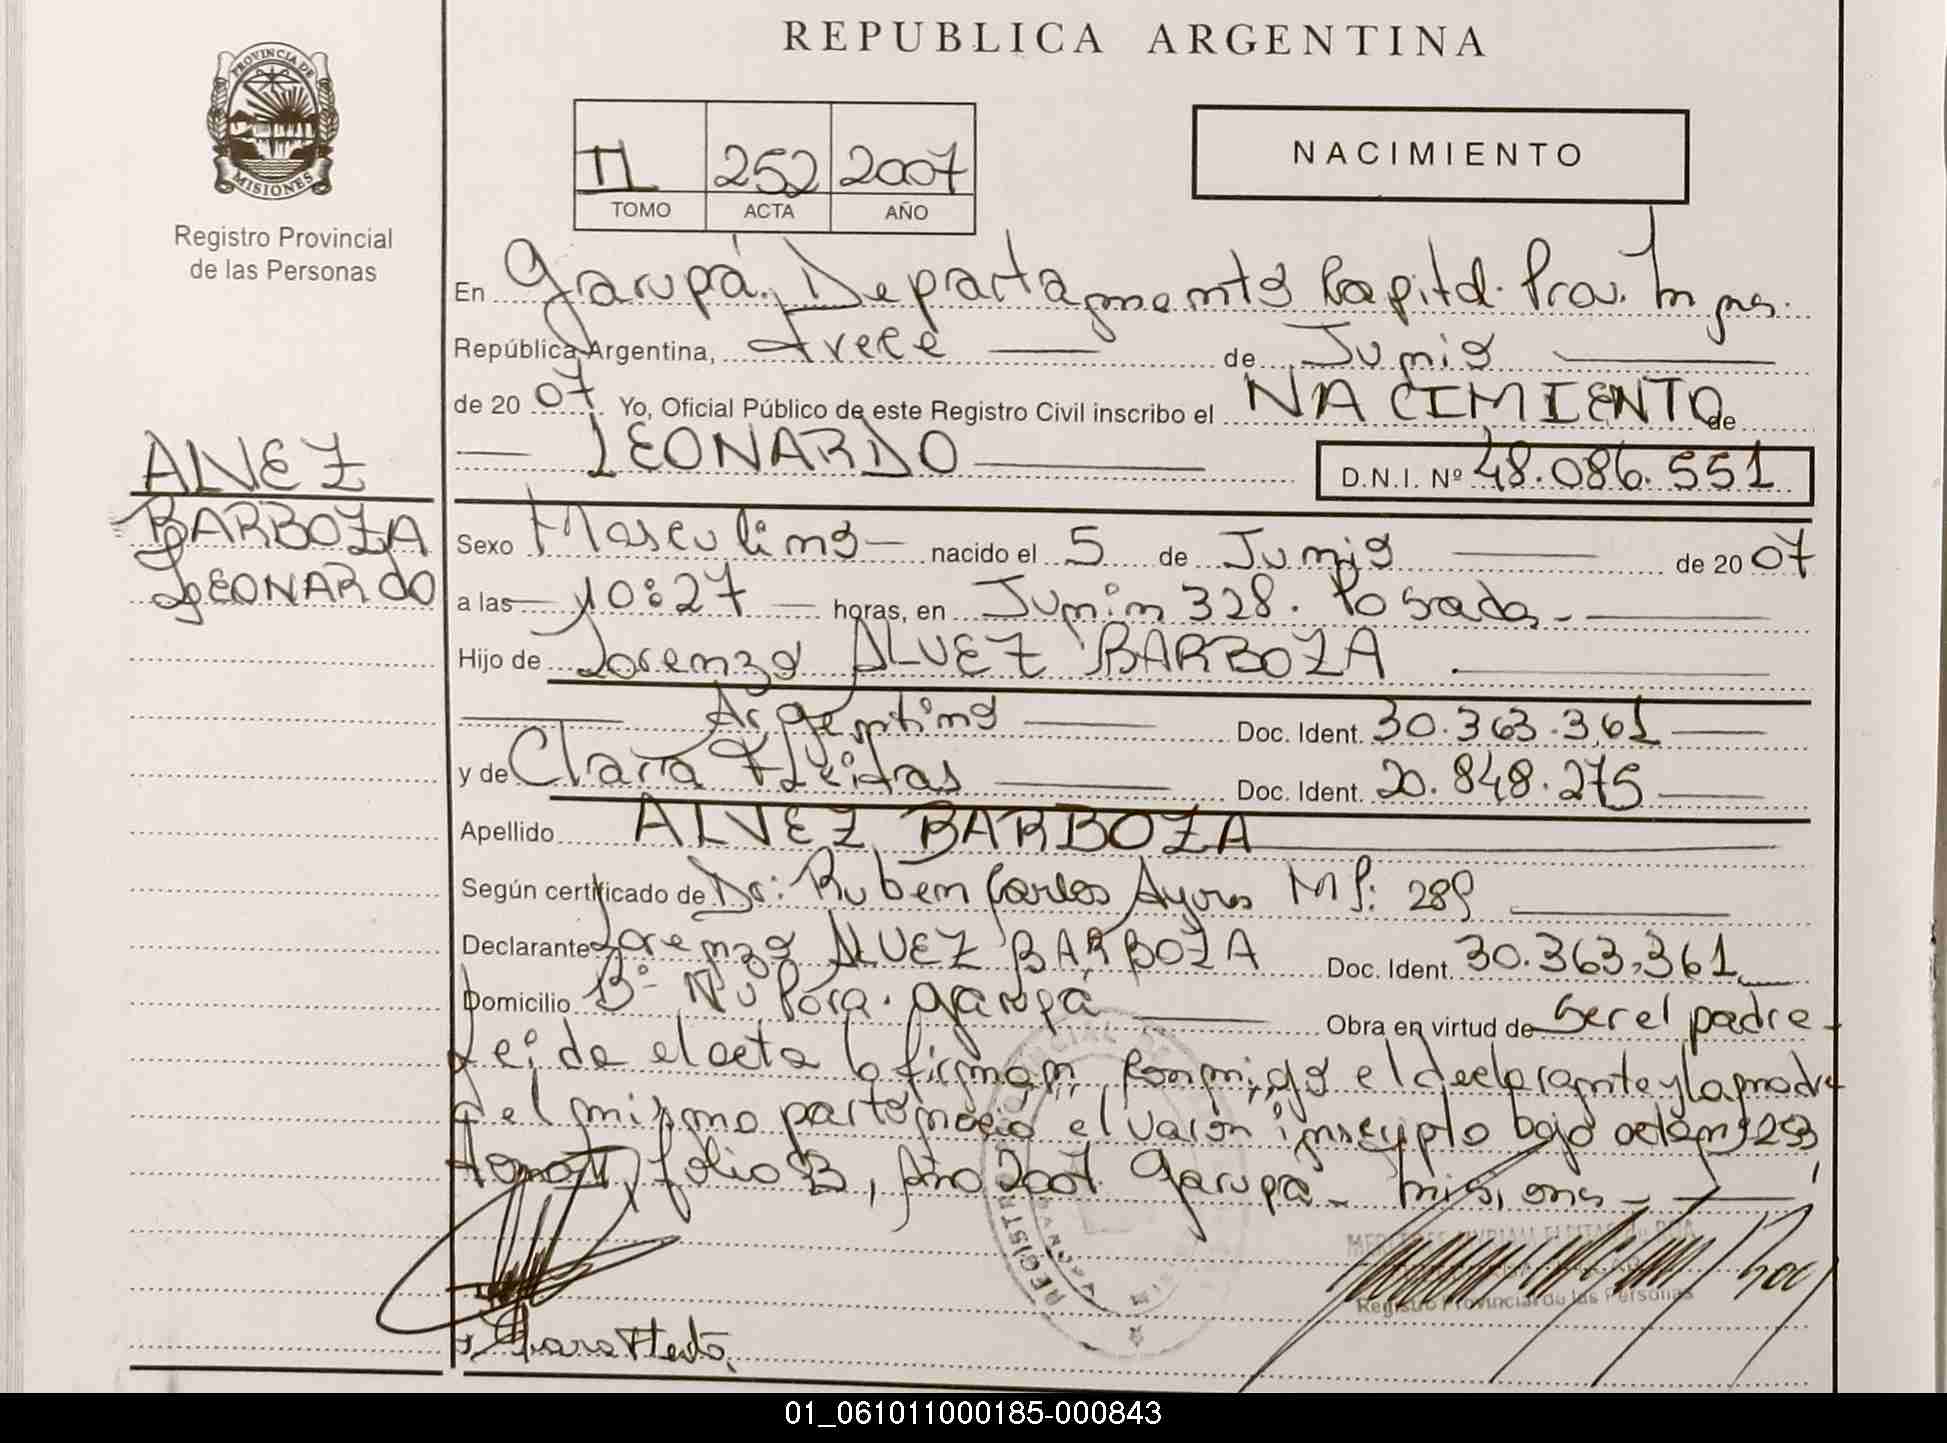 REPUBLICA ARGENTINA
PROVINCIA DE
MISIONES
Registro Provincial
de las Personas
II 252 2007
TOMO ACTA AÑO
NACIMIENTO
En Garupá, Departamento Capital. Prov. Mnes.
República Argentina, trece de Junio
de 2007 Yo, Oficial Público de este Registro Civil inscribo el NACIMIENTO de
LEONARDO D.N.I. Nº 48.086.551
ALVEZ
BARBOZA
LEONARDO
Sexo Masculino nacido el 5 de Junio de 2007
a las 10:27 horas, en Junín 328. Posadas
Hijo de Lorenzo ALVEZ BARBOZA
Argentino Doc. Ident. 30.363.361
y de Clara Fleitas Doc. Ident. 20.848.275
Apellido ALVEZ BARBOZA
Según certificado de Dr: Ruben Carlos Ayres MP: 289
Declarante Lorenzo ALVEZ BARBOZA Doc. Ident. 30.363.361
Domicilio Bº Ñu Porá. Garupá Obra en virtud de Ser el padre
Leída el acta la firman conmigo el declarante y la madre
del mismo parto nació el varón inscripto bajo acta nº 253
tomo II, folio 53, Año 2007. Garupá - Misiones -
Registro Provincial de las Personas
01_061011000185-000843